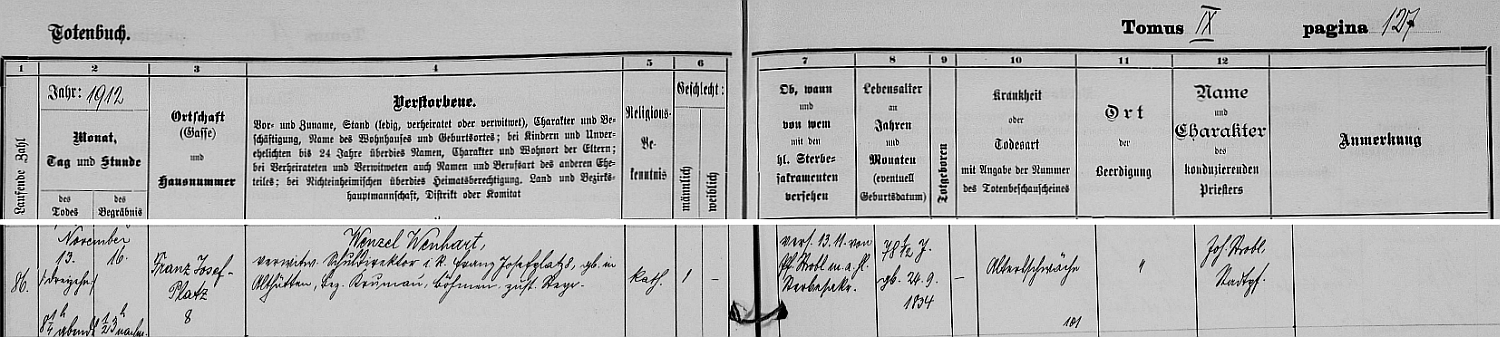 Totenbuch.
Tomus IX pagina 127
1
2
3
4
5
6
7
8
9
10
11
12
Laufende Zahl
Jahr: 1912
Monat,
Tag und Stunde
des
Todes
des
Begräbnis
Ortschaft
(Gasse)
und
Hausnummer
Verstorbene.
Vor- und Zuname, Stand (ledig, verheiratet oder verwitwet), Charakter und Be-
schäftigung, Name des Wohnhauses und Geburtsortes; bei Kindern und Unver-
ehelichten bis 24 Jahre überdies Namen, Charakter und Wohnort der Eltern;
bei Verheirateten und Verwitweten auch Namen und Berufsart des anderen Ehe-
teiles; bei Nichteinheimischen überdies Heimatsberechtigung. Land und Bezirks-
hauptmannschaft, Distrikt oder Komitat
Religions-
Be-
kenntnis
Geschlecht:
männlich
weiblich
Ob, wann
und
von wem
mit den
hl. Sterbe-
sakramenten
versehen
Lebensalter
an
Jahren
und
Monaten
(eventuell
Geburtsdatum)
Totgeboren
Krankheit
oder
Todesart
mit Angabe der Nummer
des Totenbeschauscheines
Ort
der
Beerdigung
Name
und
Charakter
des
konduzierenden
Priesters
Anmerkung
86.
November
13. 16.
(dreizehn)
8 1/4 h abends 1/2 3 h nachm.
Franz Josef-
Platz
8
Wenzel Wenhart,
verwitw. Schuldirektor i. R. Franz Josefplatz 8, gb. in
Althütten, Bez. Krumau, Böhmen. zust.
kath.
1
–
vers. 13. 11. von
Pf. Strobl m. a. hl.
Sterbesakr.
78 1/2 J.
gb. 24. 9.
1834
–
Altersschwäche
181
"
Joh. Strobl.
Stadtpf.